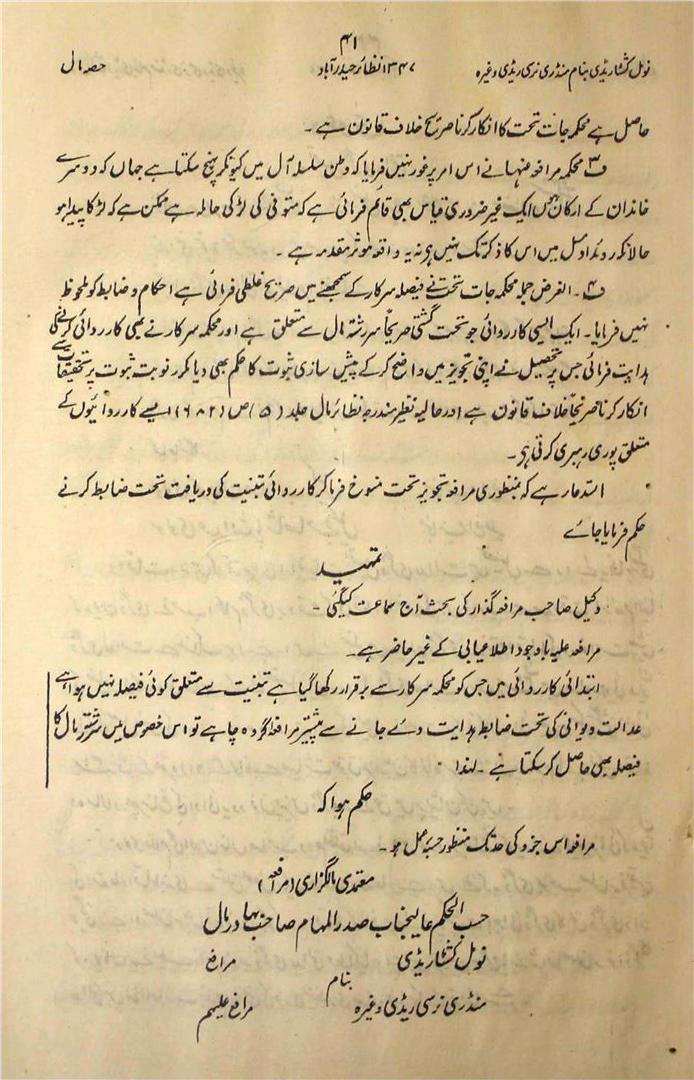 ۴۱
نوٹل کشٹاریڈی بنام منڈری نرسی ریڈی وغیرہ ۱۳۴۷ نظائر حیدرآباد حصہ مال
حاصل ہے محکمہ جات تحت کا انکار کرنا صریح خلاف قانون ہے ۔
ف۳ محکمہ مرافعہ عنہا نے اس امر پر غور نہیں فرمایا کہ وطن سلسلہ آل میں کیونکر پہنچ سکتا ہے جہاں کہ دوسرے
خاندان کے ارکان ہیں ایک غیر ضروری قیاس بھی قائم فرمائی ہے کہ متوفی کی لڑکی حاملہ ہے ممکن ہے کہ لڑکا پیدا ہو
حالانکہ روئداد مسل میں اس کا ذکر تک نہیں ہے نہ یہ واقعہ موثر مقدمہ ہے ۔
ف۴ ۔ الغرض جملہ محکمہ جات تحت نے فیصلہ سرکار کے سمجھنے میں صریح غلطی فرمائی ہے احکام و ضابطہ کو ملحوظ
نہیں فرمایا ۔ ایک ایسی کارروائی جو تحت گشتی صریحاً سررشتہ مال سے متعلق ہے اور محکمہ سرکار نے بھی کارروائی کرنے کی
ہدایت فرمائی جس پر تحصیل نے اپنی تجویز میں واضح کر کے پیش سازی ثبوت کا حکم بھی دیا مگر نوبت ثبوت پر تحقیقات سے
انکار کرنا صریحاً خلاف قانون ہے اور حالیہ نظیر مندرجہ نظائر مال جلد (۵) ص (۶۸۲) ایسے کارروائیوں کے
متعلق پوری رہبری کرتی ہے ۔
استدعا ہے کہ بمنظوری مرافعہ تجویز تحت منسوخ فرما کر کارروائی تبنیت کی دریافت تحت ضابطہ کرنے
حکم فرمایا جائے
تمہید
وکیل صاحب مرافعہ گذار کی بحث آج سماعت کیگئی ۔
مرافعہ علیہ باوجود اطلاعیابی کے غیر حاضر ہے ۔
ابتدائی کارروائی میں جس کو محکمہ سرکار سے برقرار رکھا گیا ہے تبنیت سے متعلق کوئی فیصلہ نہیں ہوا ہے
عدالت دیوانی کی تحت ضابطہ ہدایت دئے جانے سے پیشتر مرافعہ گر وہ چاہے تو اس خصوص میں سررشتہ مال کا
فیصلہ بھی حاصل کر سکتا ہے ۔ لہذا
حکم ہوا کہ
مرافعہ اس جزو کی حد تک منظور حسبہ عمل ہو ۔
معتمدی مالگزاری (مرافعہ)
حسب الحکم عالیجناب صدر المہام صاحب بہادر مال
نوٹل کشٹاریڈی مرافع
بنام
منڈری نرسی ریڈی وغیرہ مرافع علیہم